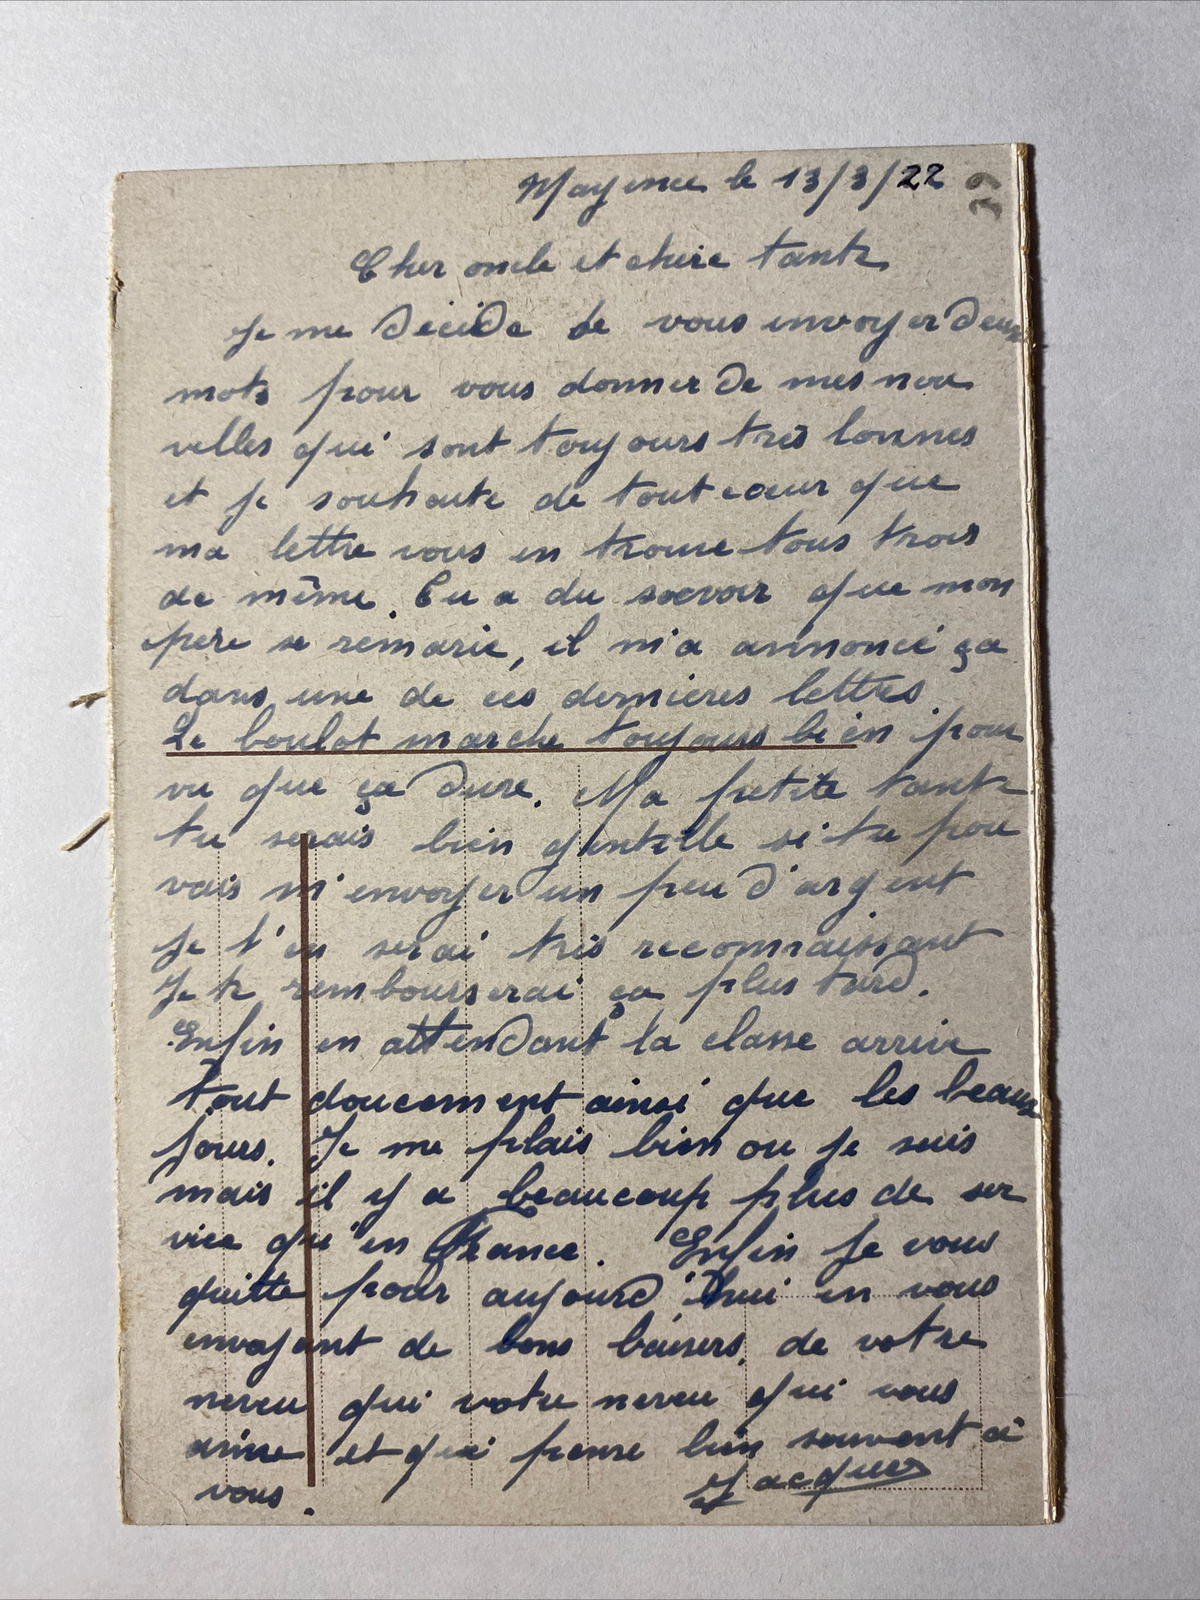 Mayence le 13/3/22
39
Cher oncle et chère tante
Je me décide de vous envoyer deux
mots pour vous donner de mes nou
velles qui sont toujours très bonnes
et je souhaite de tout cœur que
ma lettre vous en trouve tous trois
de même. Tu a du saevoir que mon
père se remarie, il m'a annoncé ça
dans une de ces dernières lettres
Le boulot marche toujours bien pour
vu que ça dure. Ma petite tante
tu serais bien gentille si tu pou
vais m'envoyer un peu d'argent
je t'en serai très reconnaissant
Je te rembourserai ça plus tard.
Enfin en attendant la classe arrive
tout doucement ainsi que les beaux
jours. Je me plais bien ou je suis
mais il y a beaucoup plus de ser
vice qu'en France. Enfin je vous
quitte pour aujourd'hui en vous
envoyant de bons baisers. de votre
neveu qui votre neveu qui vous
aime et qui pense bien souvent à
vous.
Jacques